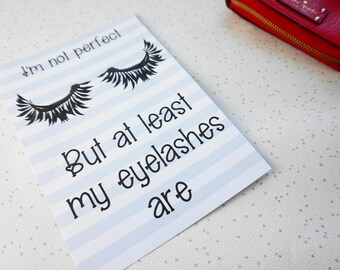 I'm not perfect
But at least
my eyelashes
are